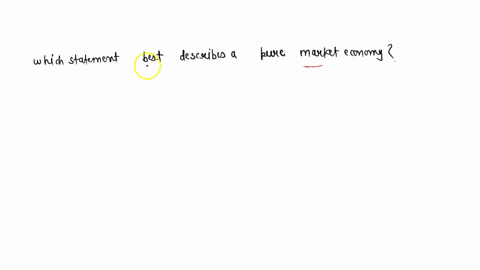 which statement best describes a pure market economy?